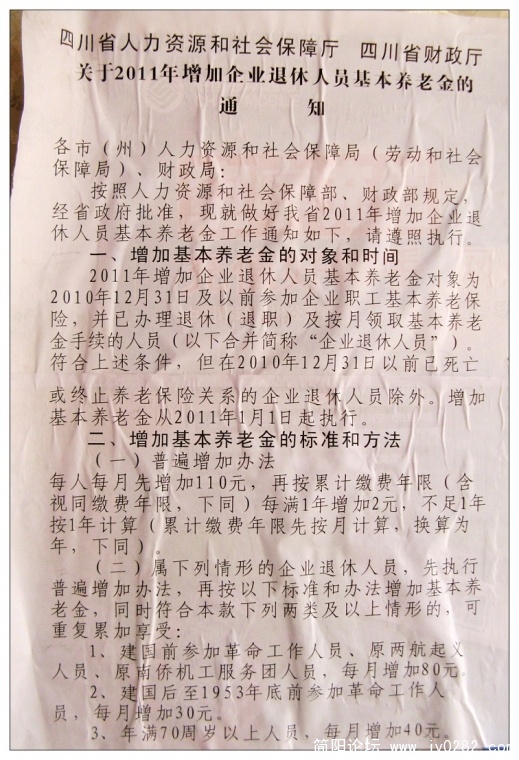 四川省人力资源和社会保障厅 四川省财政厅
关于2011年增加企业退休人员基本养老金的
通 知
各市（州）人力资源和社会保障局（劳动和社会
保障局）、财政局：
按照人力资源和社会保障部、财政部规定，
经省政府批准，现就做好我省2011年增加企业退
休人员基本养老金工作通知如下，请遵照执行。
一、增加基本养老金的对象和时间
2011年增加企业退休人员基本养老金对象为
2010年12月31日及以前参加企业职工基本养老保
险，并已办理退休（退职）及按月领取基本养老
金手续的人员（以下合并简称“企业退休人员”）。
符合上述条件，但在2010年12月31日以前已死亡
或终止养老保险关系的企业退休人员除外。增加
基本养老金从2011年1月1日起执行。
二、增加基本养老金的标准和方法
（一）普遍增加办法
每人每月先增加110元，再按累计缴费年限（含
视同缴费年限，下同）每满1年增加2元，不足1年
按1年计算（累计缴费年限先按月计算，换算为
年，下同）。
（二）属下列情形的企业退休人员，先执行
普遍增加办法，再按以下标准和办法增加基本养
老金，同时符合本款下列两类及以上情形的，可
重复累加享受：
1、建国前参加革命工作人员、原两航起义
人员、原南侨机工服务团人员，每月增加80元。
2、建国后至1953年底前参加革命工作人
员，每月增加30元。
3、年满70周岁以上人员，每月增加40元。
简阳论坛 www.jy0282.com